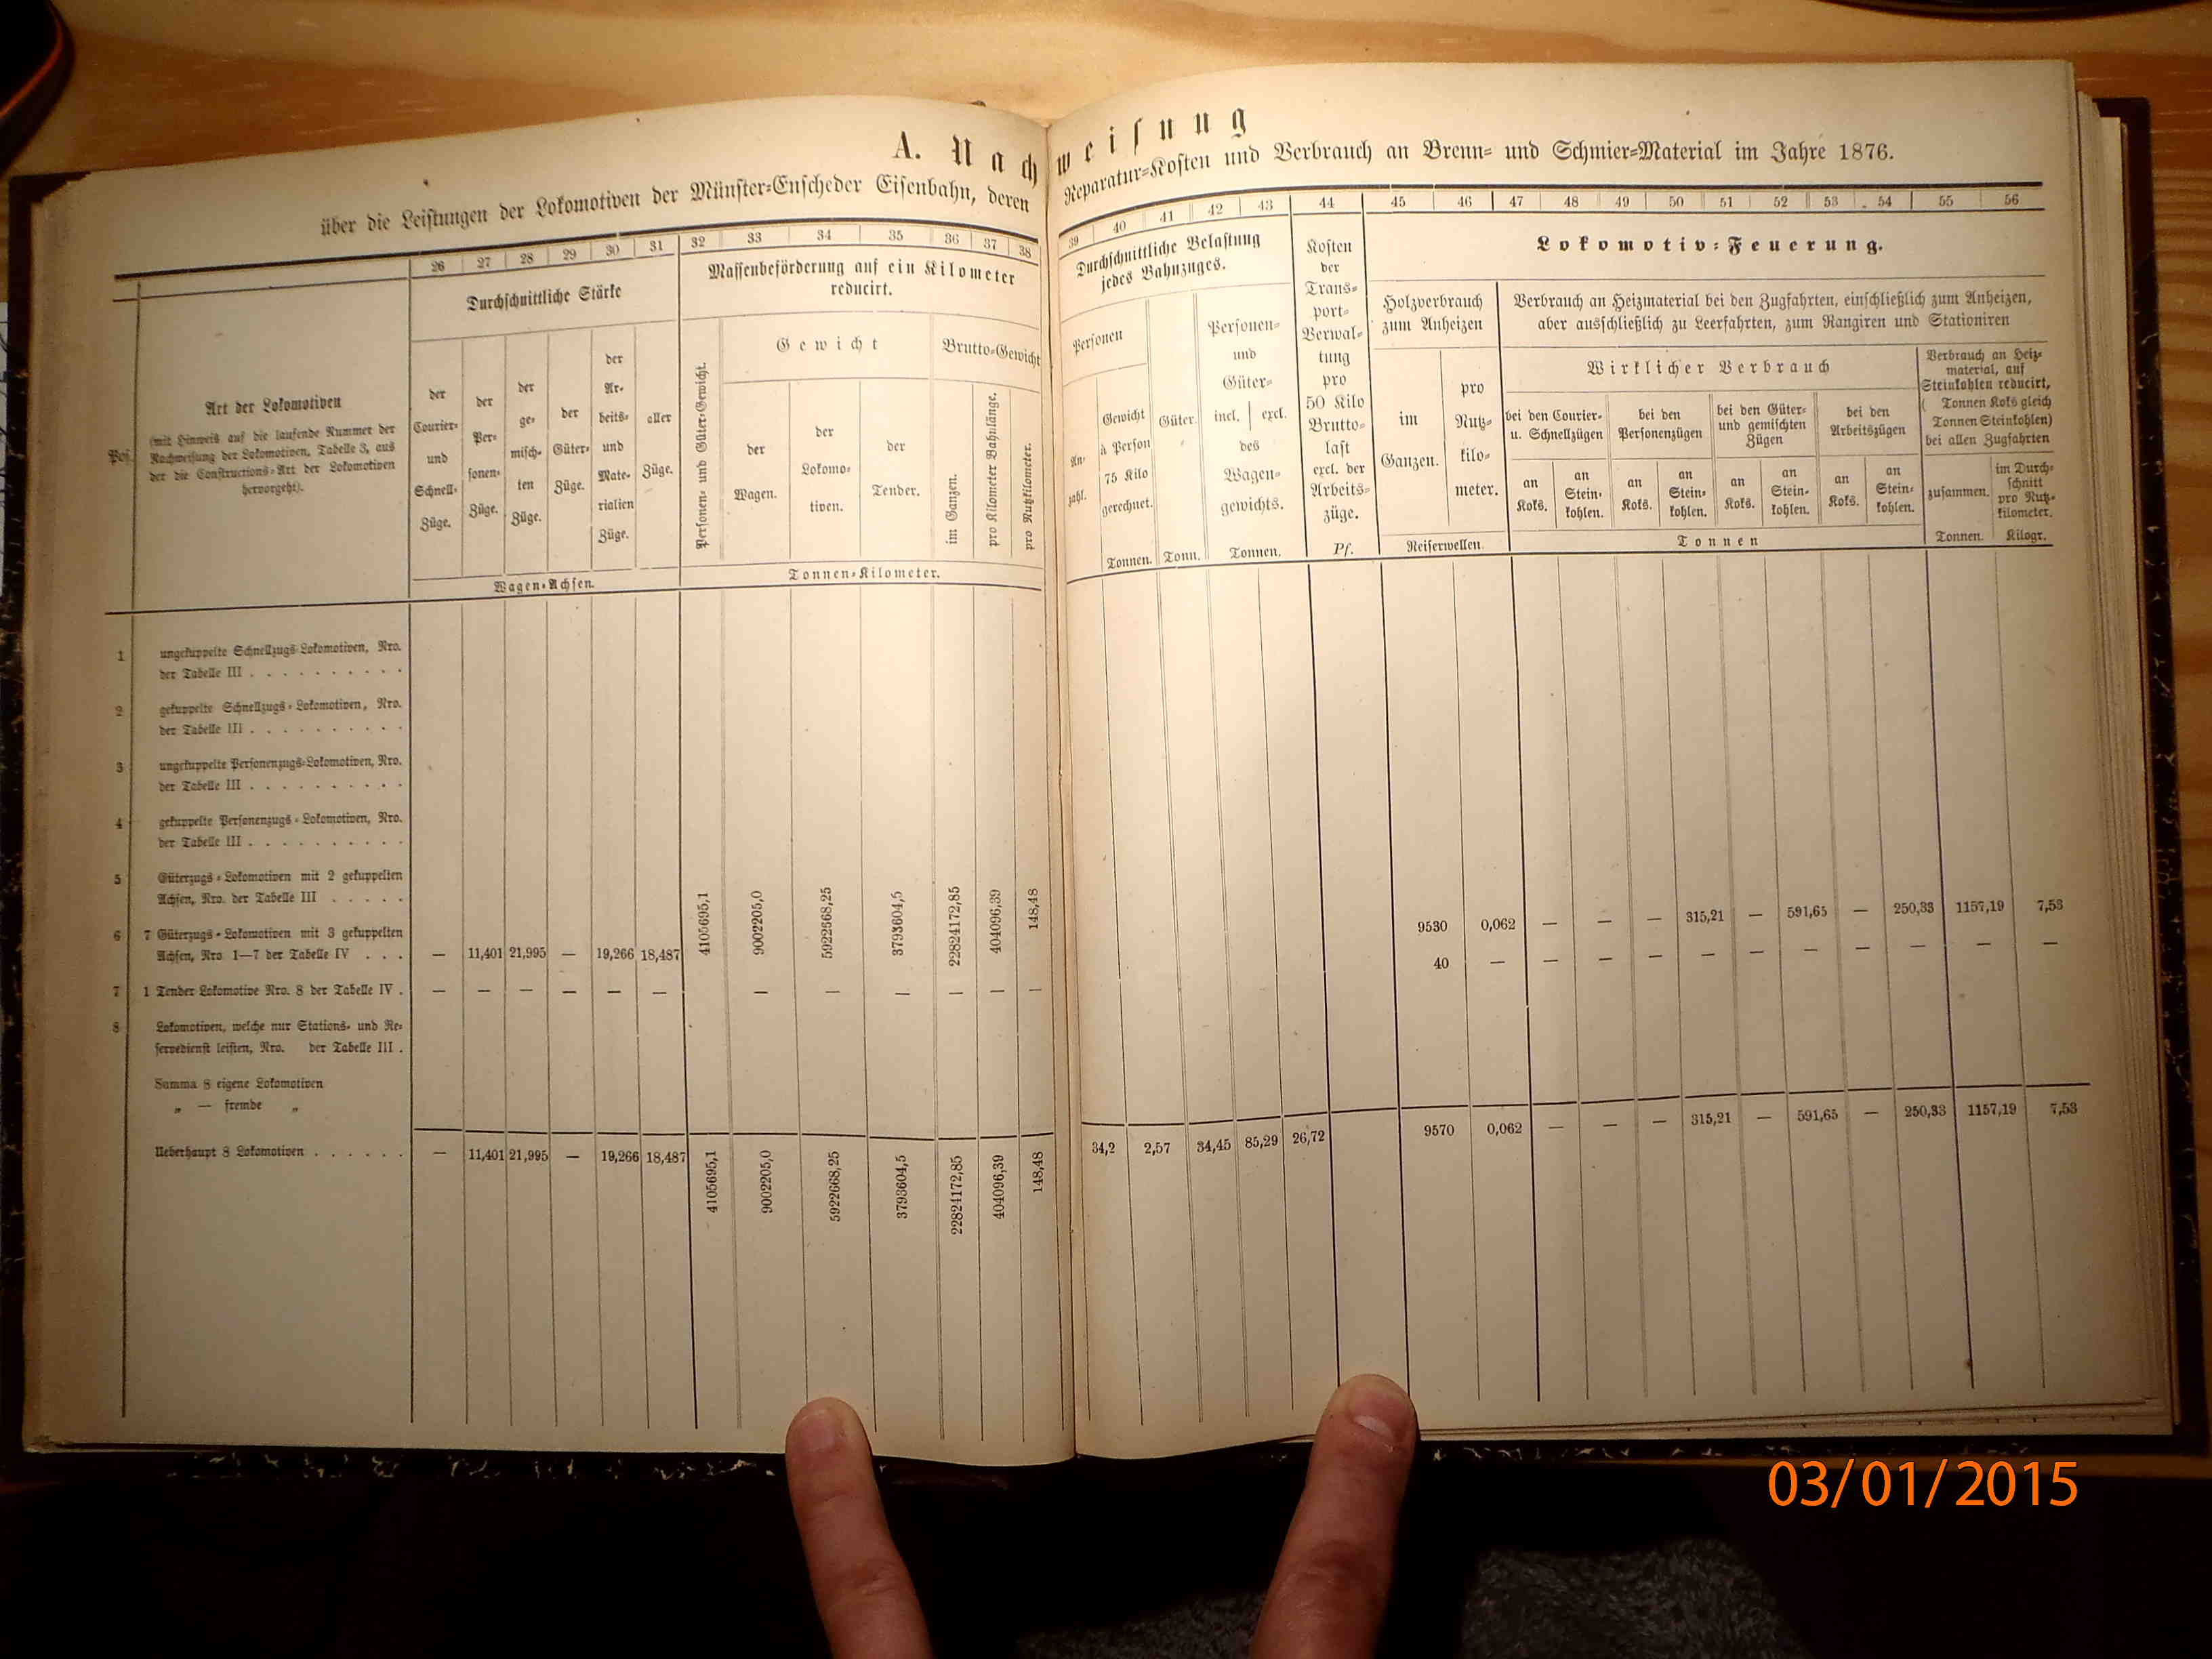 A. Nachweisung
über die Leistungen der Lokomotiven der Münster-Enscheder Eisenbahn, deren Reparatur-Kosten und Verbrauch an Brenn- und Schmier-Material im Jahre 1876.
26 27 28 29 30 31 32 33 34 35 36 37 38 39 40 41 42 43 44 45 46 47 48 49 50 51 52 53 54 55 56
Pos.
Art der Lokomotiven
(mit Hinweis auf die laufende Nummer der
Nachweisung der Lokomotiven, Tabelle 3, aus
der die Constructions-Art der Lokomotiven
hervorgeht).
Durchschnittliche Stärke
der
Courier-
und
Schnell-
Züge.
der
Per-
sonen-
Züge.
der
ge-
misch-
ten
Züge.
der
Güter-
Züge.
der
Ar-
beits-
und
Mate-
rialien
Züge.
aller
Züge.
Wagen-Achsen.
Massenbeförderung auf ein Kilometer
reducirt.
Personen- und Güter-Gewicht.
Gewicht
der
Wagen.
der
Lokomo-
tiven.
der
Tender.
Brutto-Gewicht
im Ganzen.
pro Kilometer Bahnlänge.
pro Nutzkilometer.
Tonnen-Kilometer.
Durchschnittliche Belastung
jedes Bahnzuges.
Personen
An-
zahl.
Gewicht
à Person
75 Kilo
gerechnet.
Tonnen.
Güter
Tonn.
Personen-
und
Güter-
incl. excl.
des
Wagen-
gewichts.
Tonnen.
Kosten
der
Trans-
port-
Verwal-
tung
pro
50 Kilo
Brutto-
last
excl. der
Arbeits-
züge.
Pf.
Lokomotiv-Feuerung.
Holzverbrauch
zum Anheizen
im
Ganzen.
pro
Nutz-
kilo-
meter.
Reiserwellen.
Verbrauch an Heizmaterial bei den Zugfahrten, einschließlich zum Anheizen,
aber ausschließlich zu Leerfahrten, zum Rangiren und Stationiren
Wirklicher Verbrauch
bei den Courier-
u. Schnellzügen
an
Koks.
an
Stein-
kohlen.
bei den
Personenzügen
an
Koks.
an
Stein-
kohlen.
bei den Güter-
und gemischten
Zügen
an
Koks.
an
Stein-
kohlen.
bei den
Arbeitszügen
an
Koks.
an
Stein-
kohlen.
Tonnen
Verbrauch an Heiz-
material, auf
Steinkohlen reducirt,
( Tonnen Koks gleich
Tonnen Steinkohlen)
bei allen Zugfahrten
zusammen.
Tonnen.
im Durch-
schnitt
pro Nutz-
kilometer.
Kilogr.
1 ungekuppelte Schnellzugs-Lokomotiven, Nro.
der Tabelle III . . . . . . . . . .
2 gekuppelte Schnellzugs-Lokomotiven, Nro.
der Tabelle III . . . . . . . . . .
3 ungekuppelte Personenzugs-Lokomotiven, Nro.
der Tabelle III . . . . . . . . . .
4 gekuppelte Personenzugs-Lokomotiven, Nro.
der Tabelle III . . . . . . . . . .
5 Güterzugs-Lokomotiven mit 2 gekuppelten
Achsen, Nro. der Tabelle III . . . . .
6 7 Güterzugs-Lokomotiven mit 3 gekuppelten
Achsen, Nro 1—7 der Tabelle IV . . . — 11,401 21,995 — 19,266 18,487 4105695,1 9002205,0 5922668,25 3793604,5 22824172,85 404096,39 148,48 9530 0,062 — — — 315,21 — 591,65 — 250,33 1157,19 7,53
7 1 Tender Lokomotive Nro. 8 der Tabelle IV . — — — — — — — — — — — — 40 — — — — — — — — — — —
8 Lokomotiven, welche nur Stations- und Re-
servedienst leisten, Nro. der Tabelle III .
Summa 8 eigene Lokomotiven
„ — fremde „
Ueberhaupt 8 Lokomotiven . . . . . . — 11,401 21,995 — 19,266 18,487 4105695,1 9002205,0 5922668,25 3793604,5 22824172,85 404096,39 148,48 34,2 2,57 34,45 85,29 26,72 9570 0,062 — — — 315,21 — 591,65 — 250,33 1157,19 7,53
03/01/2015